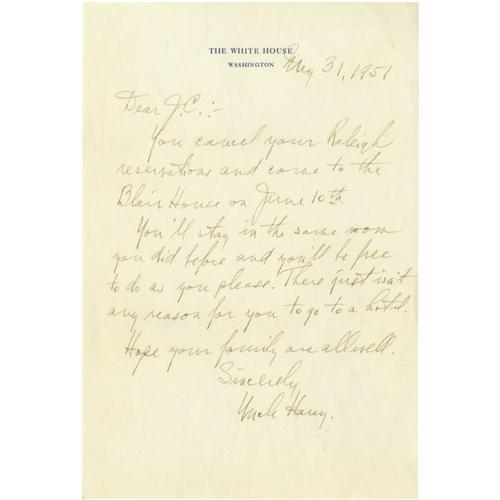 THE WHITE HOUSE
WASHINGTON
May 31, 1951
Dear J.C.:-
You cancel your Raleigh
reservations and come to the
Blair House on June 10th
You'll stay in the same room
you did before and you'll be free
to do as you please. There just isn't
any reason for you to go to a hotel.
Hope your family are all well.
Sincerely
Uncle Harry.